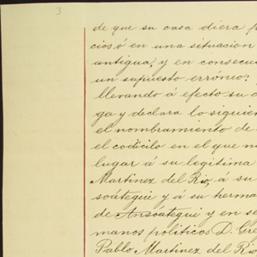 3
de que su casa diera p
cios ó en una situacion
antigua; y en consecue
un supuesto erróneo:
llevando á efecto su o
ga y declara lo siguien
el nombramiento de
el codicilo en el que no
lugar á su legítima
Martinez del Rio, á su
soátegui y á su herma
de Ansoátegui y en se
manos políticos D. Gre
Pablo Martinez del Rio